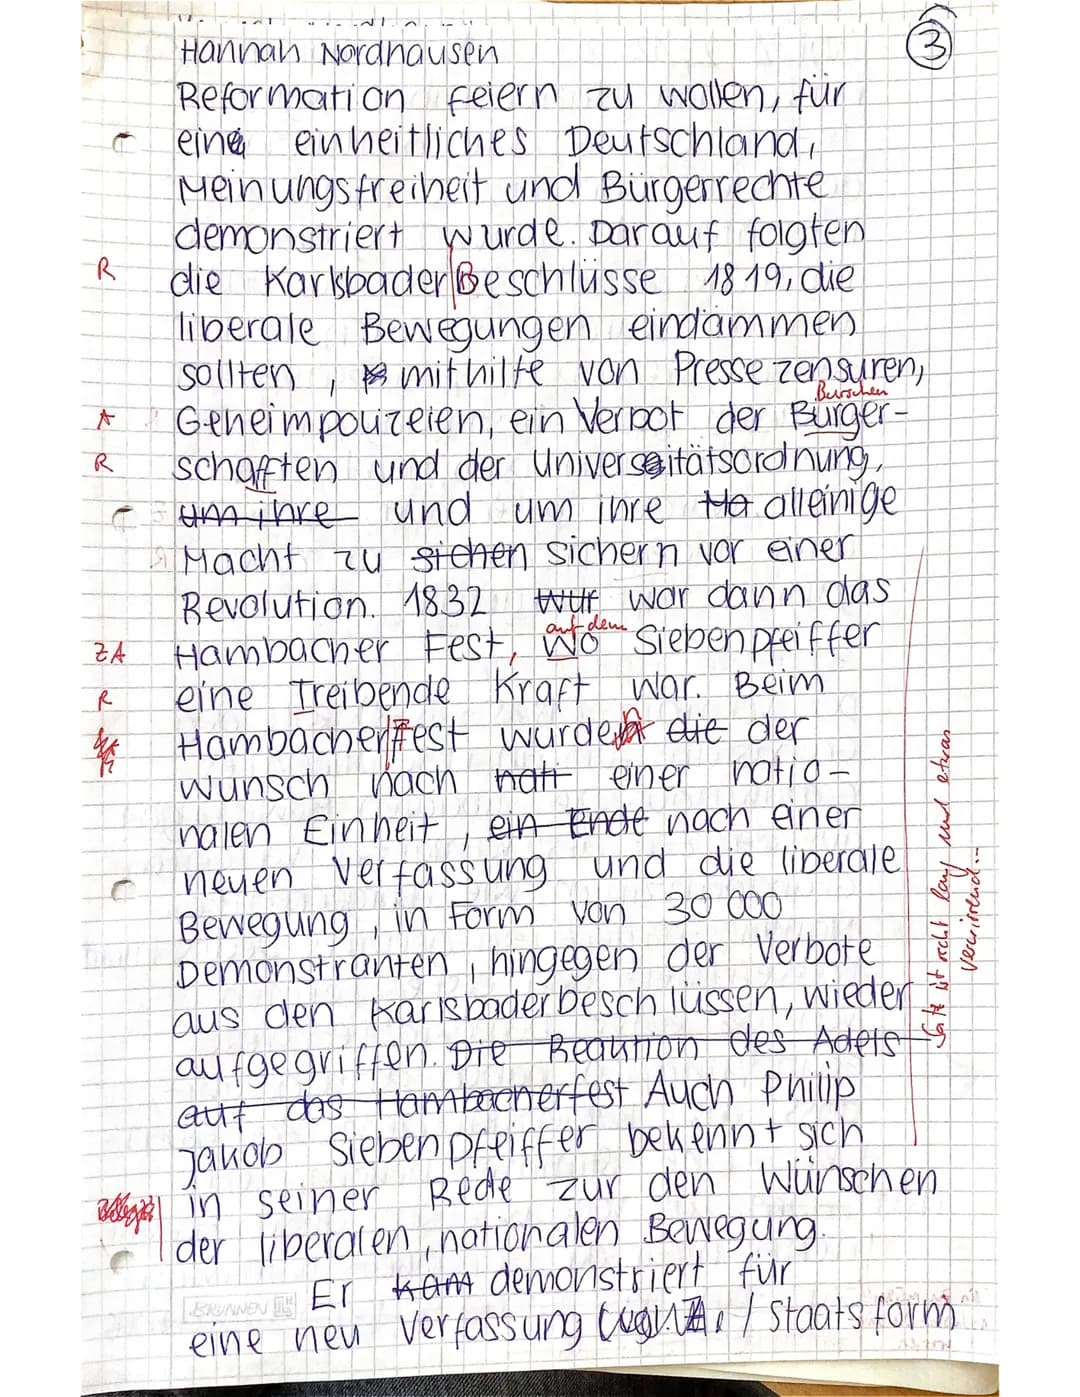 Hannah Nordhausen
3
Reformation feiern zu wollen, für
eine einheitliches Deutschland,
Meinungsfreiheit und Bürgerrechte
demonstriert wurde. Darauf folgten
R
die Karlsbader Beschlüsse 1819, die
liberale Bewegungen eindämmen
sollten, mithilfe von Pressezensuren,
Burschen
A
Geheimpolizeien, ein Verbot der Bürger-
R
schafften und der Universitätsordnung,
um ihre und um ihre Ma alleinige
Macht zu sichen sichern vor einer
Revolution. 1832 wur war dann das
auf dem
ZA
Hambacher Fest, wo Siebenpfeiffer
R
eine Treibende Kraft war. Beim
Hambacherfest wurde die der
Wunsch nach nati einer natio-
nalen Einheit, ein Ende nach einer
neuen Verfassung und die liberale
Bewegung, in Form von 30 000
Demonstranten, hingegen der Verbote
aus den Karlsbaderbeschlüssen, wieder
aufgegriffen. Die Reaktion des Adels
auf das Hambacherfest Auch Philip
Jakob Siebenpfeiffer bekennt sich
in seiner Rede zur den Wünschen
der liberalen, nationalen Bewegung.
Er kam demonstriert für
BRUNNEN
eine neu Verfassung / Staatsform
Satz ist recht lang und etwas
verwirrend...